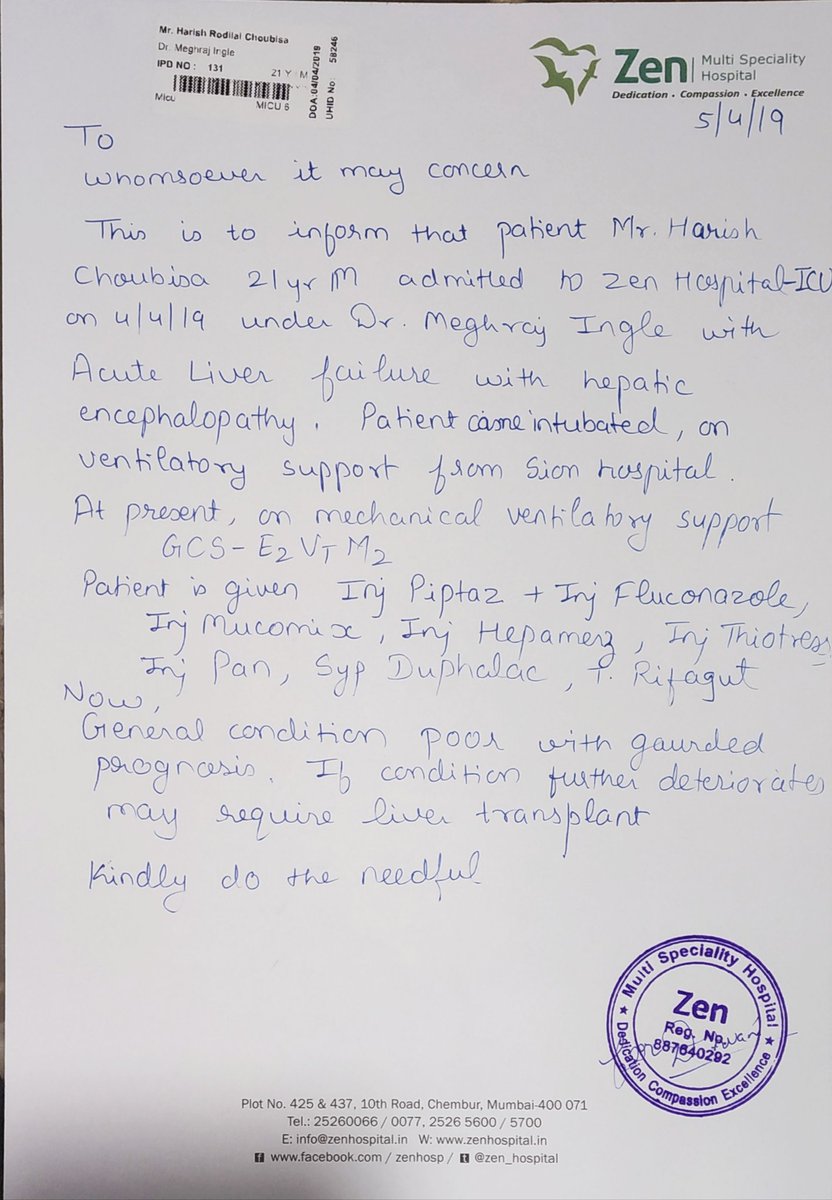 Mr. Harish Rodilal Choubisa
Dr. Meghraj Ingle
IPD NO : 131
21 Y M
Micu
MICU 6
DOA:04/04/2019
UHID No: 58246
Zen
Multi Speciality
Hospital
Dedication . Compassion . Excellence
5/4/19
To
whomsoever it may concern
This is to inform that patient Mr. Harish
Choubisa 21yr M admitted to Zen Hospital-ICU
on 4/4/19 under Dr. Meghraj Ingle with
Acute Liver failure with hepatic
encephalopathy. Patient came intubated, on
ventilatory support from Sion hospital.
At present, on mechanical ventilatory support
GCS - E2 VT M2
Patient is given Inj Piptaz + Inj Fluconazole,
Inj Mucomix, Inj Hepamerz, Inj Thiotress
Inj Pan, Syp Duphalac, T. Rifagut
Now,
General condition poor with gaurded
prognosis. If condition further deteriorates
may require liver transplant
Kindly do the needful
Multi Speciality Hospital
Zen
Reg. No.
887640292
Dedication Compassion Excellence
Plot No. 425 & 437, 10th Road, Chembur, Mumbai-400 071
Tel.: 25260066 / 0077, 2526 5600 / 5700
E: info@zenhospital.in W: www.zenhospital.in
www.facebook.com / zenhosp / @zen_hospital